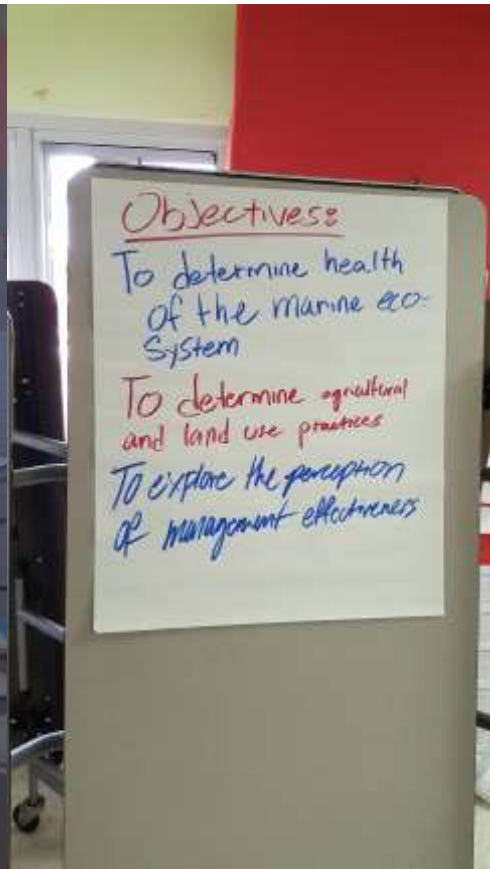 Objectives:
To determine health
of the marine eco-
system
To determine agricultural
and land use practices
To explore the perception
of management effectiveness